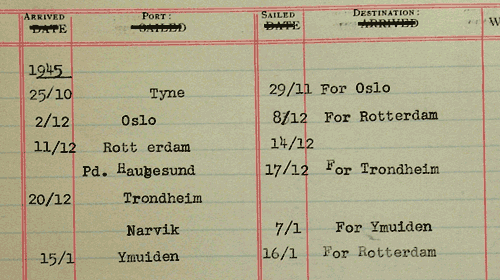 ARRIVED PORT: SAILED DESTINATION:
DATE SAILED DATE ARRIVED W
1945
25/10 Tyne 29/11 For Oslo
2/12 Oslo 8/12 For Rotterdam
11/12 Rott erdam 14/12
Pd. Haugesund 17/12 For Trondheim
20/12 Trondheim
Narvik 7/1 For Ymuiden
15/1 Ymuiden 16/1 For Rotterdam